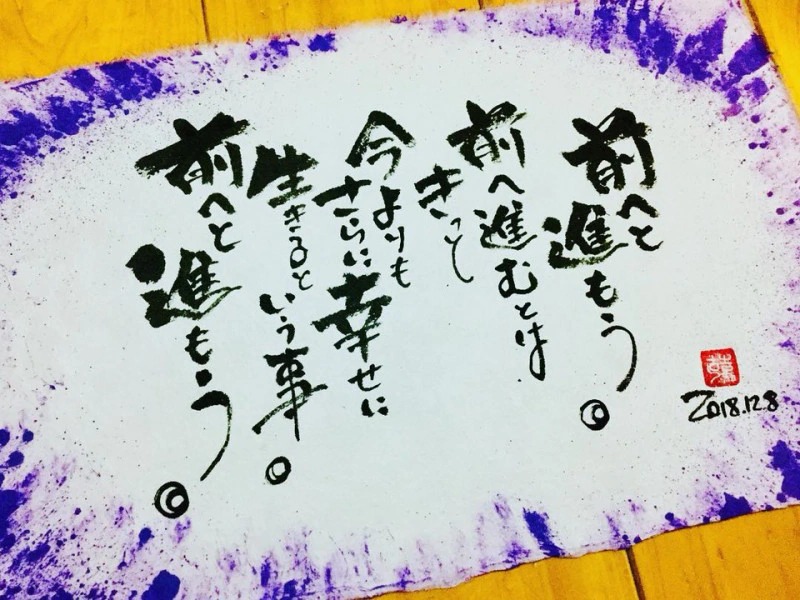 前へと進もう。
前へ進むとは
きっと
今よりも
さらに幸せに
生きると
いう事。
前へと進もう。
2018.12.8